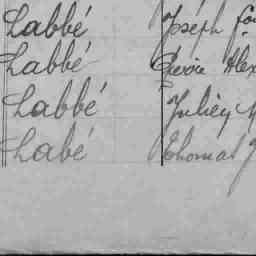 Labbé Joseph
Labbé Pierre Alex
Labbé Julien
Labé Thomas